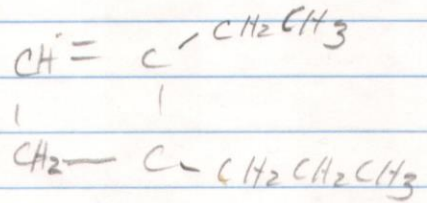 CH = C - CH2CH3
| |
CH2 — C - CH2CH2CH3